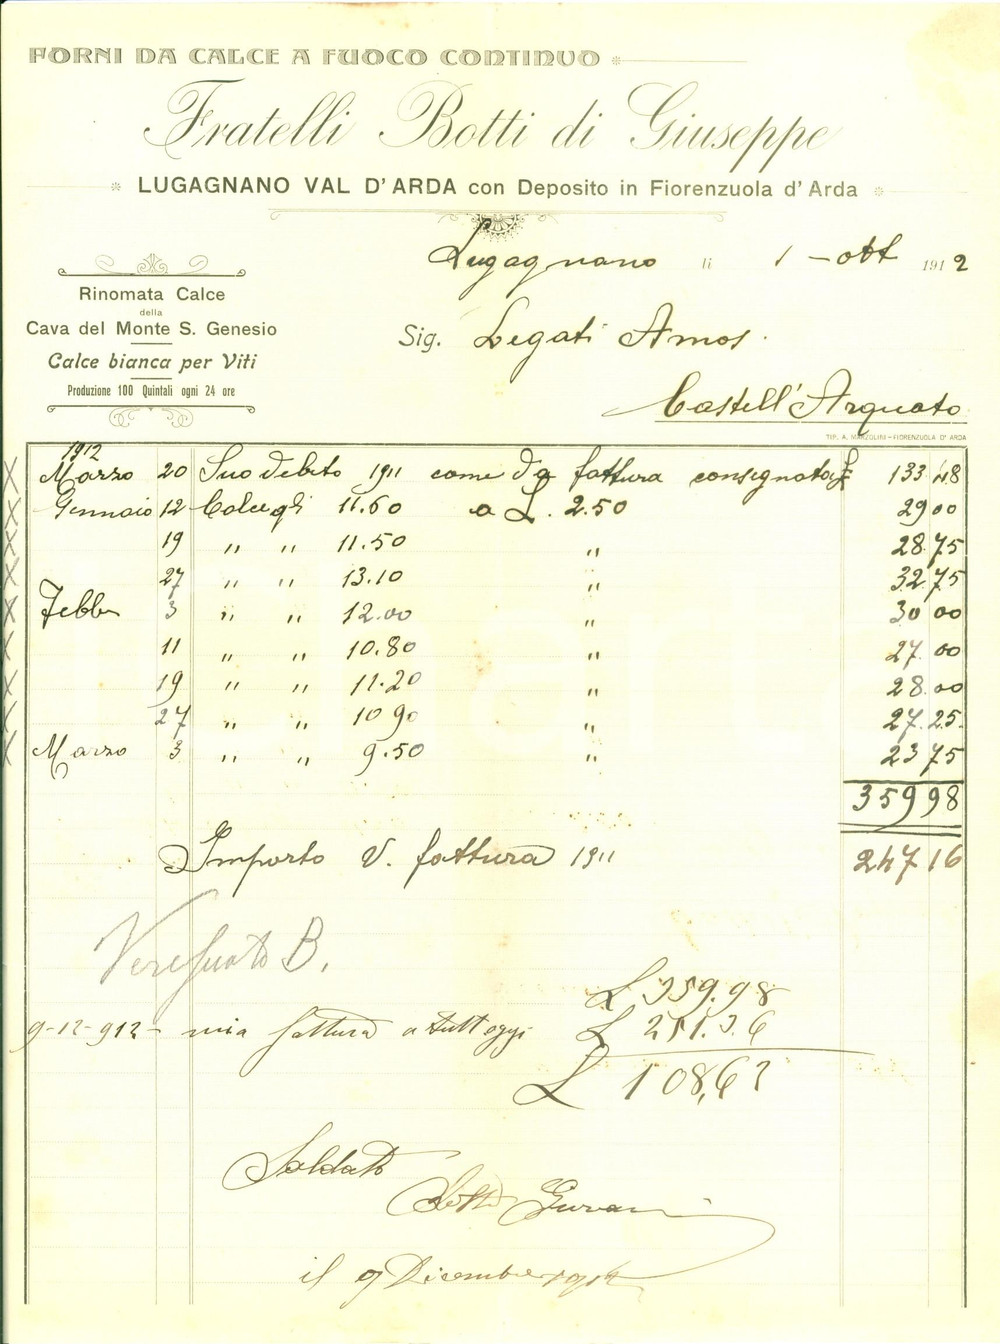 FORNI DA CALCE A FUOCO CONTINUO
Fratelli Botti di Giuseppe
LUGAGNANO VAL D'ARDA con Deposito in Fiorenzuola d'Arda
Lugagnano li 1 - ott 1912
Rinomata Calce
della
Cava del Monte S. Genesio
Calce bianca per Viti
Produzione 100 Quintali ogni 24 ore
Sig. Legati Amos.
Castell'Arquato
TIP. A. MARZOLINI - FIORENZUOLA D'ARDA
1912
Marzo 20 Suo debito 1911 come da fattura consegnata £ 133 48
Gennaio 12 Calce ql 11.60 a L. 2.50 29 00
19 " " 11.50 " 28.75
27 " " 13.10 " 32.75
Febb 3 " " 12.00 " 30 00
11 " " 10.80 " 27. 00
19 " " 11.20 " 28.00
27 " " 10 90 " 27.25.
Marzo 3 " " 9.50 " 23 75
359 98
Importo V. fattura 1911 247 16
B.
L 359.98
9-12-912 - mia fattura a tutt oggi L 251.36
L 108,62
Saldato
Botti
il 9 Dicembre 1912